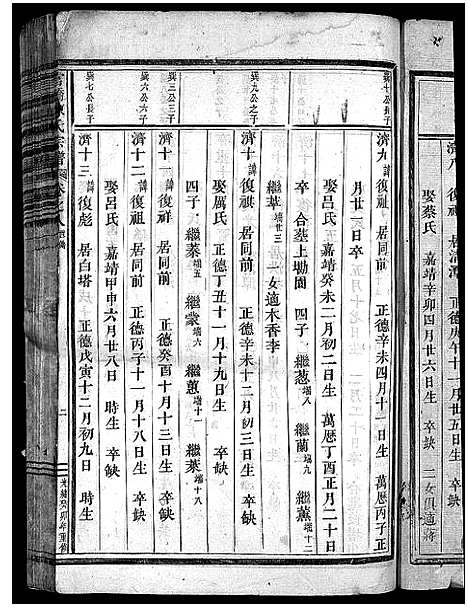 濟八 復祖 居清潭 正德庚午十一月廿五日生 卒缺
娶蔡氏 嘉靖辛卯四月廿六日生 卒缺 二女俱適蔣
巽十公長子
濟九 諱復祖 居同前 正德辛未四月十一日生 萬曆丙子正
月廿一日卒
娶呂氏 嘉靖癸未二月初二日生 萬曆丁酉正月二十日
卒 合墓上坳園 四子 繼葱 端八 繼蘭 端九 繼薰 端十二
繼莘 端廿三 一女適木香李
巽九公之子
濟十 諱復祺 居同前 正德辛未十二月初三日生 卒缺
娶厲氏 正德丁丑十一月十九日生 卒缺
四子 繼棻 端五 繼蒙 端六 繼蕙 端十一 繼葉 端十八
巽三公三子
濟十一 諱復祥 居同前 正德癸酉十月十三日生 卒缺
巽六公六子
濟十二 諱復祖 居同前 正德丙子十一月十八日生 卒缺
娶呂氏 嘉靖甲申六月廿八日 時生 卒缺
巽七公長子
濟十三 諱復彪 居白塔 正德戊寅十二月初九日 時生
氏宗譜
二
光緒癸卯年重修